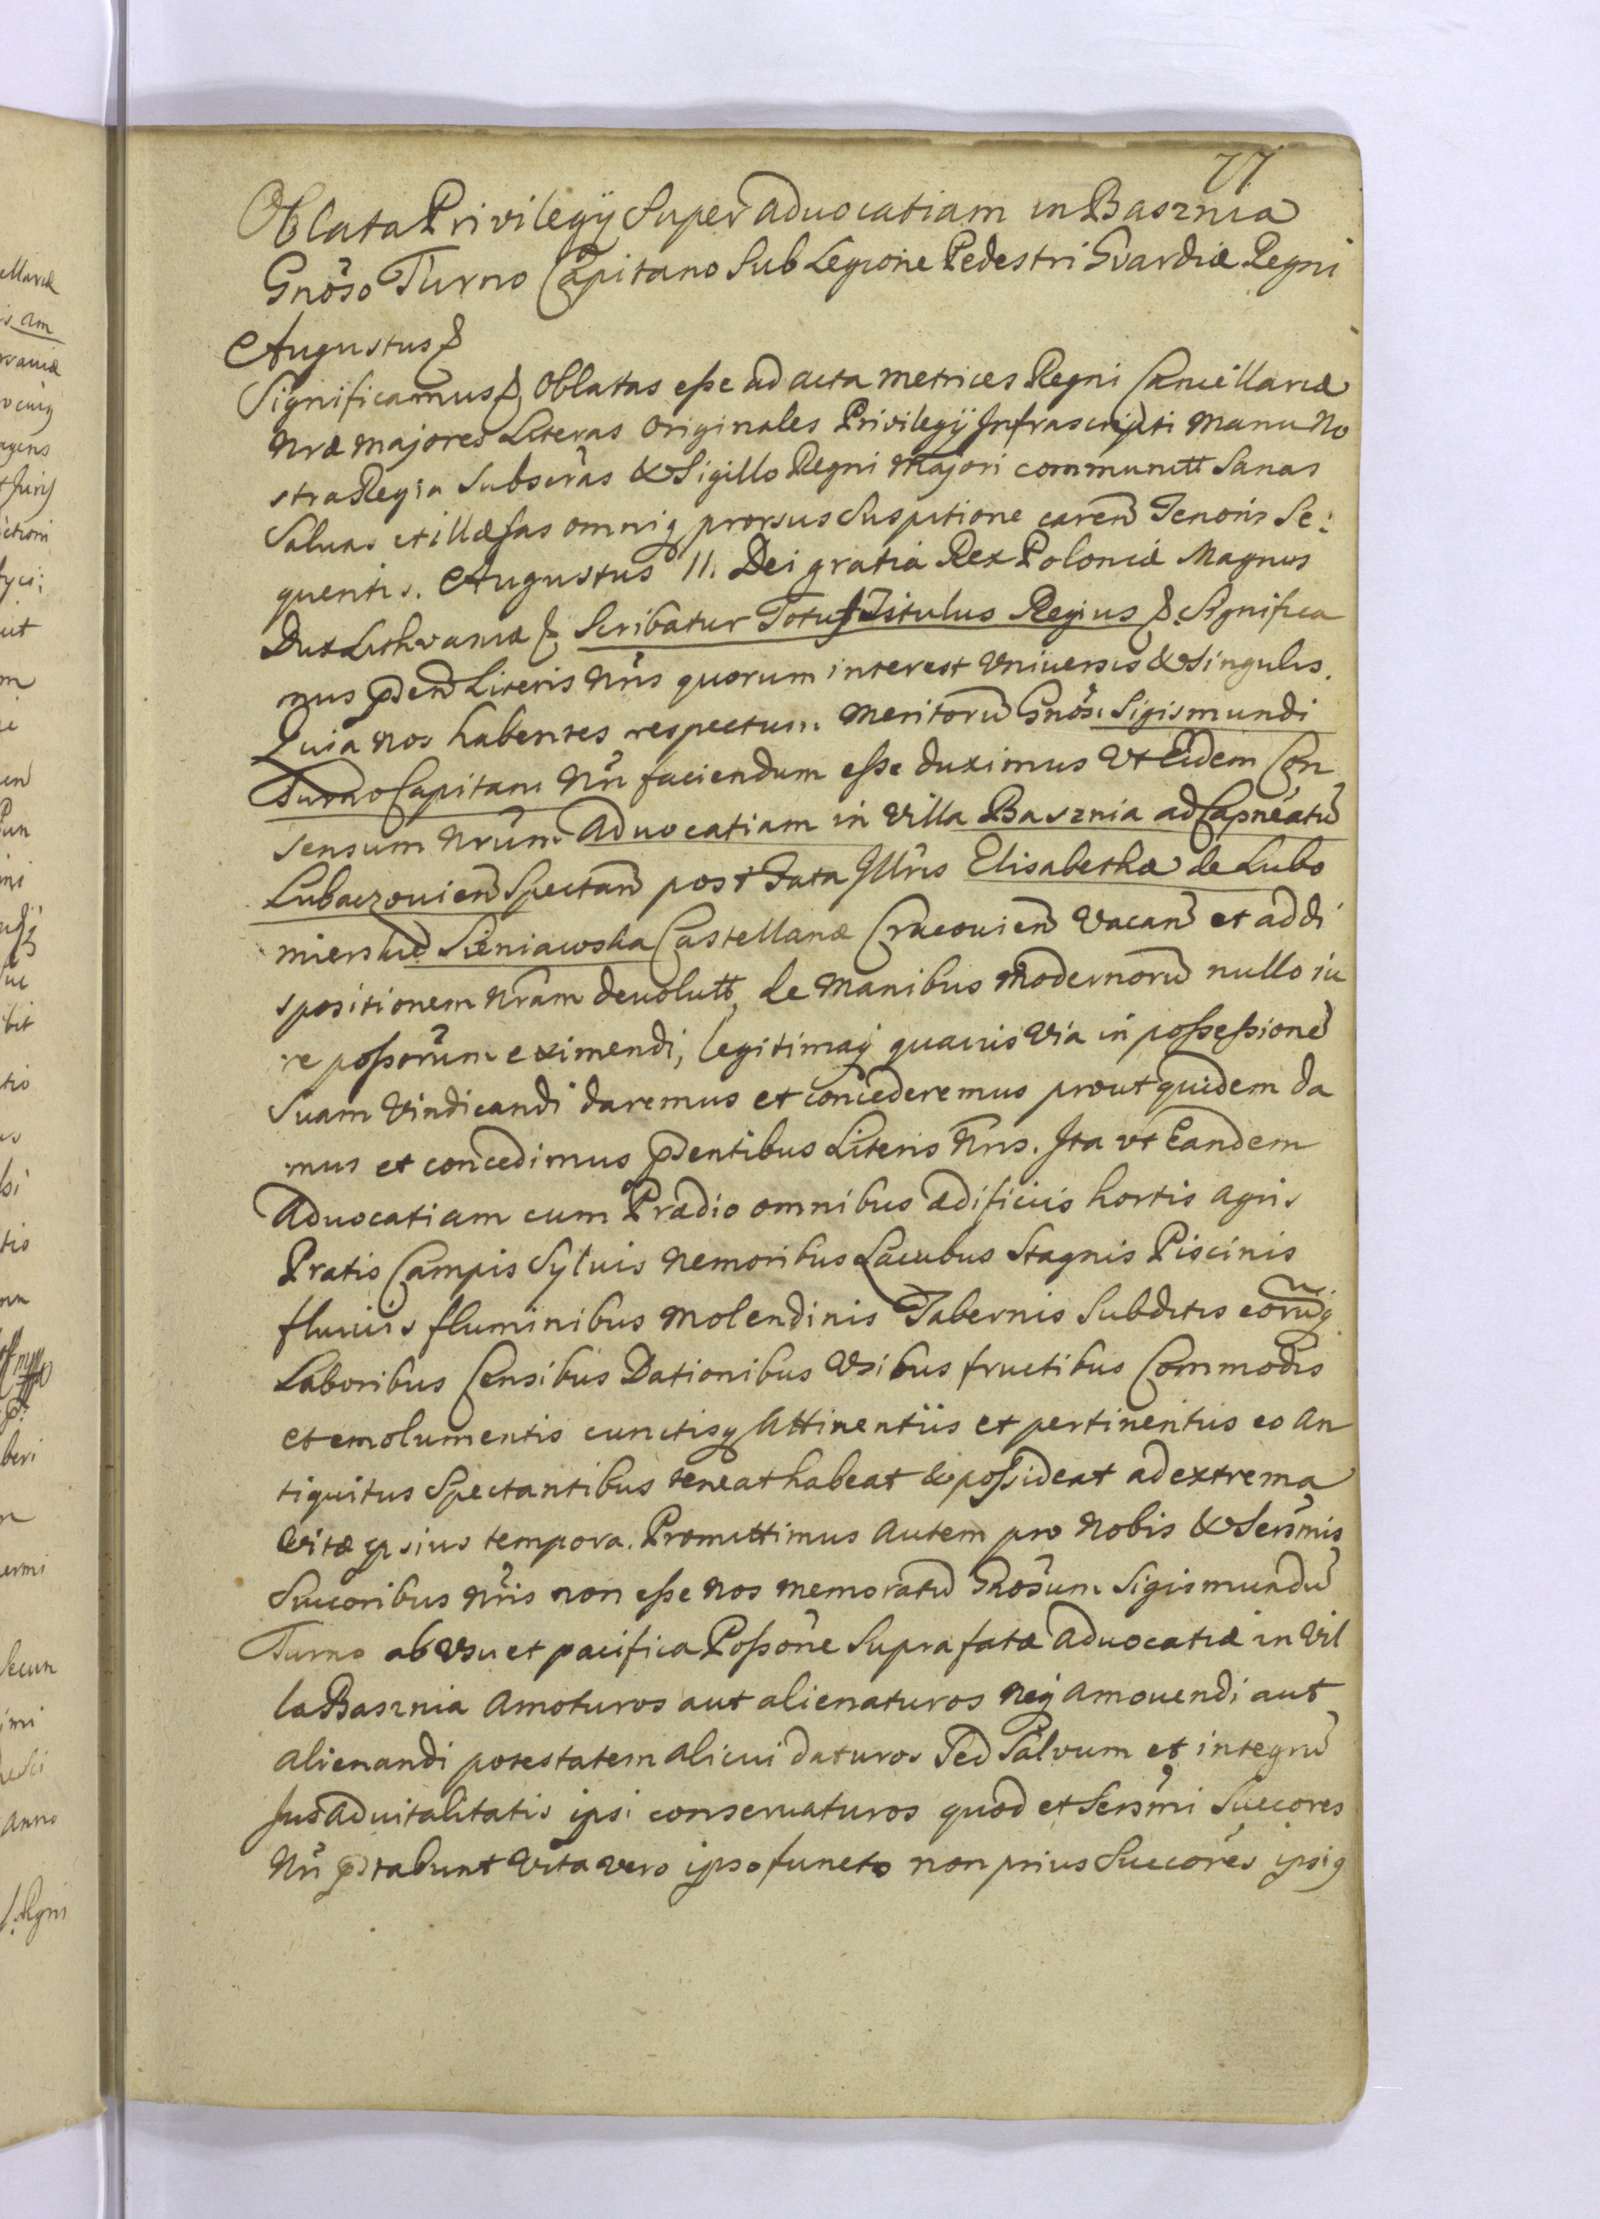 77
Oblata Privilegÿ Super Advocatiam in Basznia
Gnõso Turno Capitano Sub Legione Pedestri Gvardiæ Regni
Augustus &
Significamus &, Oblatas esse ad acta metrices Regni Cancellariæ
Nræ majores Literas Originales Privilegÿ Infrascripti manu No
stra Regia Subscrãs & Sigillo Regni Majori communitt Sanas
Salvas et illæsas omniq prorsus Suspitione careñ Tenoris Se:
quentis. Augustus II. Dei gratia Rex Poloniæ Magnus
Dux Lithvaniæ & Scribatur Totus Titulus Regius &. Significa
mus pdeñ Literis Nr̃is quorum interest Vniuersis & Singulis.
Quia nos habentes respectum meritorũ Gnõsi Sigismundi
Turno Capitani Nr̃i faciendum esse duximus Vt Eidem Con
sensum Nrũm Aduocatiam in Villa Basznia ad Capneatũ
Lubaczouieñ Spectañ post Fata Illr̃is Elisabethæ de Lubo
mierskie Sieniawska Castellanæ Cracouieñ Vacañ et ad di
spositionem Nrãm deuolutt, de manibus modernorũ nullo iu
re possorũm eximendi, legitimaq quavis Via in possessionẽ
Suam Vindicandi daremus et concederemus prout quidem da
mus et concedimus pdentibus Literis Nr̃is. Ita vt Eandem
Aduocatiam cum Prædio omnibus ædificiis hortis agris
Pratis Campis Syluis Nemoribus Lacubus Stagnis Piscinis
fluuiis fluminibus Molendinis Tabernis Subditis eorũq
Laboribus Censibus Dationibus Vsibus fructibus Commodis
et emolumentis cunctisq Attinentiis et pertinentiis eo an
tiquitus Spectantibus teneat habeat & possideat ad extrema
Vitæ ipsius tempora. Promittimus autem pro Nobis & Sersm̃is
Succoribus Nr̃is non esse Nos memoratũ Gnõsum Sigismundũ
Turno ab Vsu et pacifica Possõne Suprafatæ Aduocatiæ in Vil
la Basznia Amoturos aut alienaturos Neq amouendi aut
alienandi potestatem alicui daturos Sed Salvum et integrũ
Jus Aduitalitatis ipsi conservaturos quod et Sersm̃i Succores
Nr̃i pstabunt Vita vero ipso functo non prius Succores ipsiq